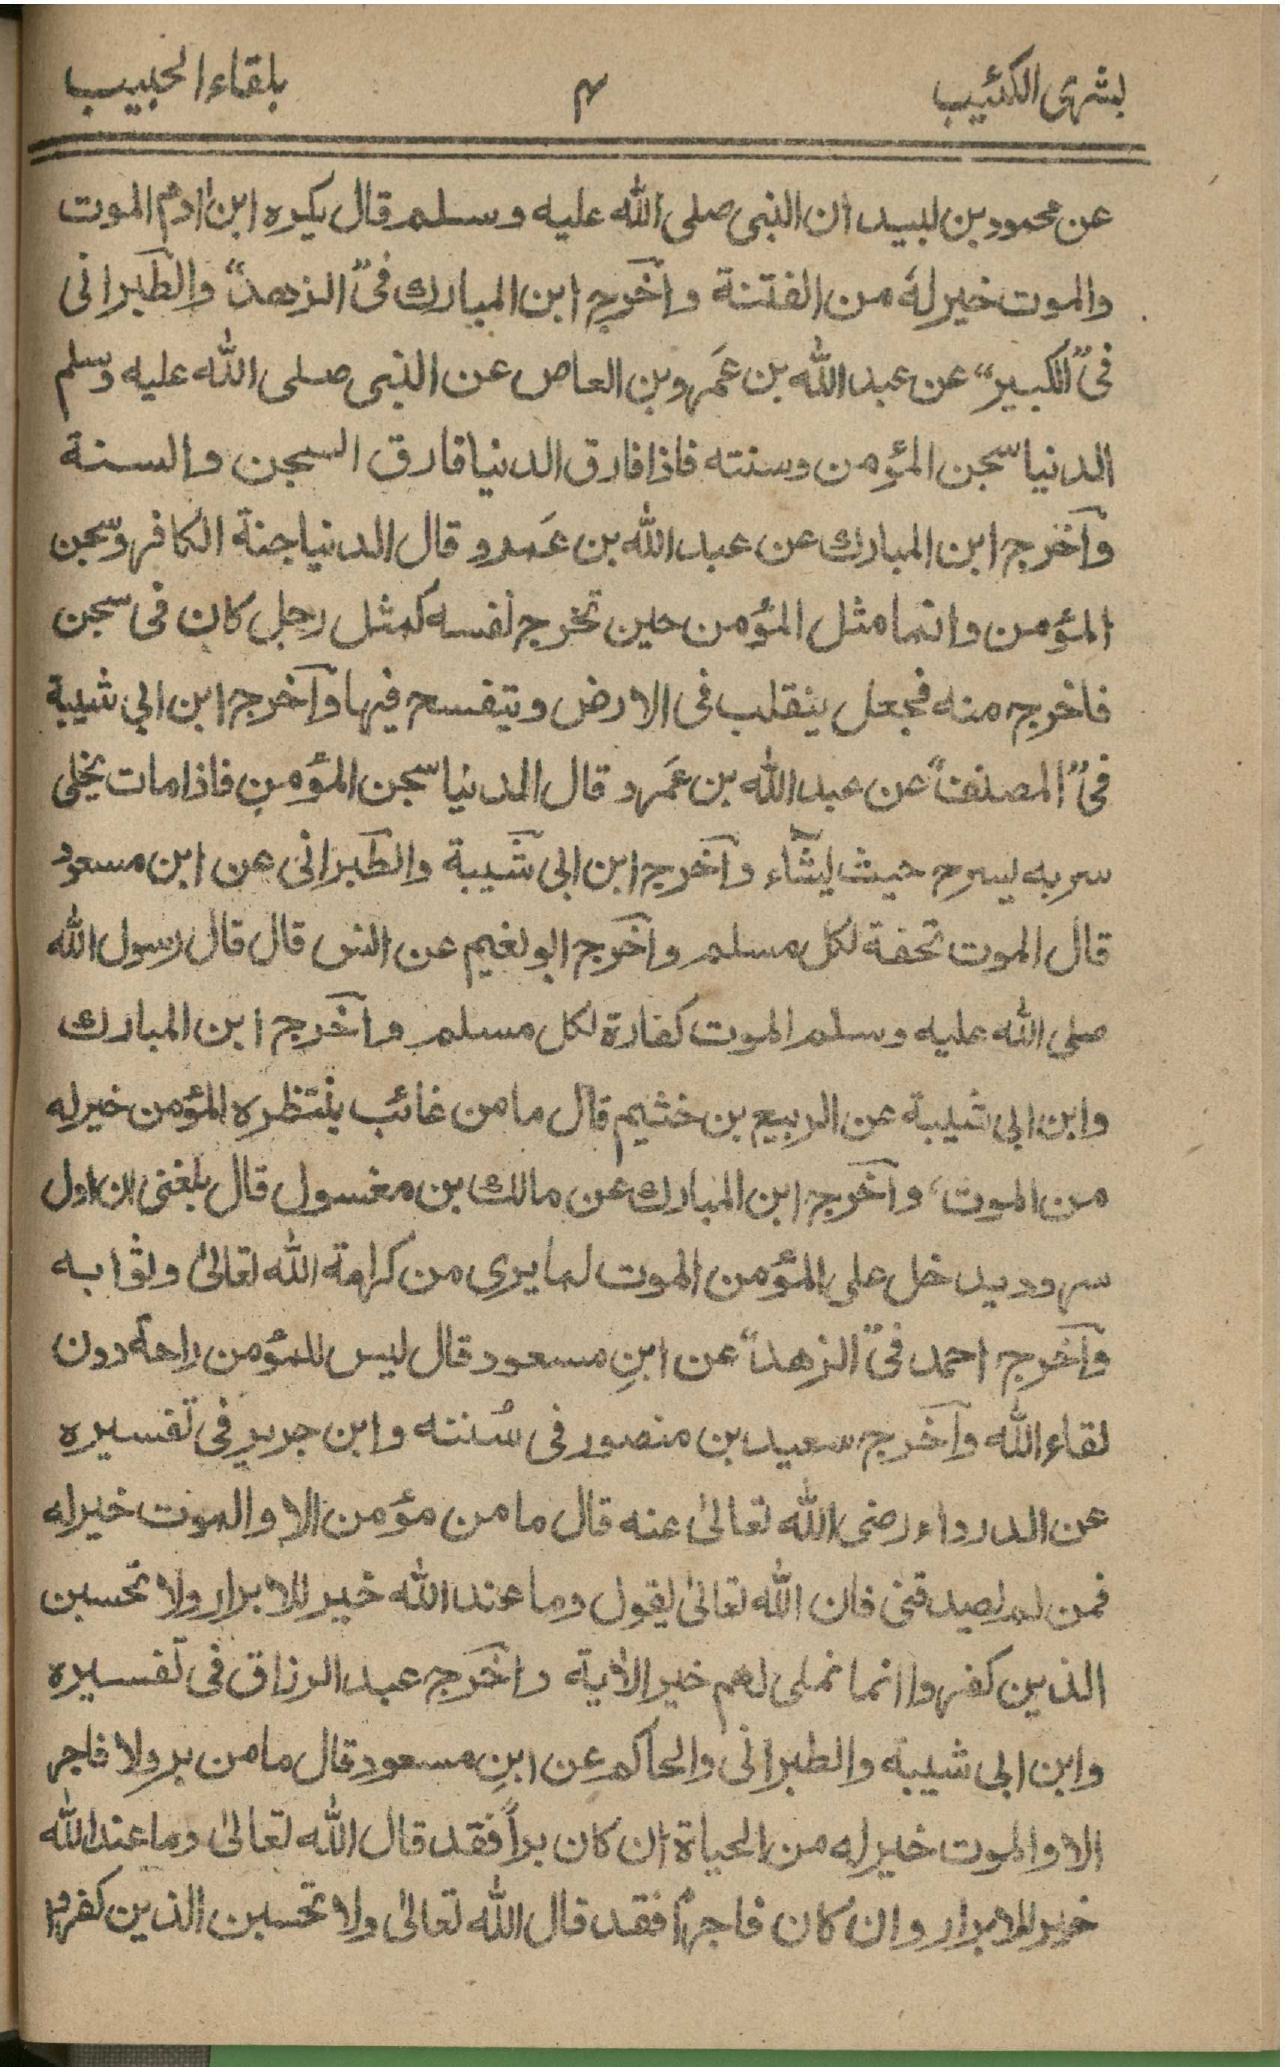 بشرى الكئيب ۴ بلقاء الحبيب
عن محمود بن لبيد ان النبى صلى الله عليه وسلم قال يكره ابن اٰدم الموت
والموت خير لهٗ من الفتنة وأخرج ابن المبارك فى "الزهد" والطبرانى
فى "الكبير" عن عبد الله بن عَمرو بن العاص عن النبى صلى الله عليه وسلم
الدنيا سجن المؤمن وسنته فاذا فارق الدنيا فارق السجن والسنة
وأخرج ابن المبارك عن عبد الله بن عَمرو قال الدنيا جنة الكافر وسجن
المؤمن وانما مثل المؤمن حين تخرج نفسه كمثل رجل كان فى سجن
فاخرج منه فجعل ينقلب فى الارض ويتفسح فيها وأخرج ابن ابي شيبة
فى "المصنف" عن عبد الله بن عَمرو قال الدنيا سجن المؤمن فاذا مات يخلى
سربه يسرح حيث يشاء وأخرج ابن ابى شيبة والطبرانى عن ابن مسعود
قال الموت تحفة لكل مسلم وأخرج ابو نعيم عن انس قال قال رسول الله
صلى الله عليه وسلم الموت كفارة لكل مسلم وأخرج ابن المبارك
وابن ابى شيبة عن الربيع بن خثيم قال ما من غائب ينتظره المؤمن خير له
من الموت، وأخرج ابن المبارك عن مالك بن مغسول قال بلغنى ان اول
سرور يدخل على المؤمن الموت لما يرى من كرامة الله تعالىٰ وثوابه
وأخرج احمد فى "الزهد" عن ابنِ مسعود قال ليس للمؤمن راحة دون
لقاء الله وأخرج سعيد بن منصور فى سُننه وابن جرير فى تفسيره
عن الدرداء رضى الله تعالىٰ عنه قال ما من مؤمن الا والموت خير له
فمن لم يصدقنى فان الله تعالىٰ يقول وما عند الله خير للابرار ولا تحسبن
الذين كفروا انما نملى لهم خير الاٰية وأخرج عبد الرزاق فى تفسيره
وابن ابى شيبة والطبرانى والحاكم عن ابنِ مسعود قال ما من بر ولا فاجر
الا والموت خير له من الحياة ان كان براً فقد قال الله تعالىٰ وما عند الله
خير للابرار وان كان فاجراً فقد قال الله تعالىٰ ولا تحسبن الذين كفروا